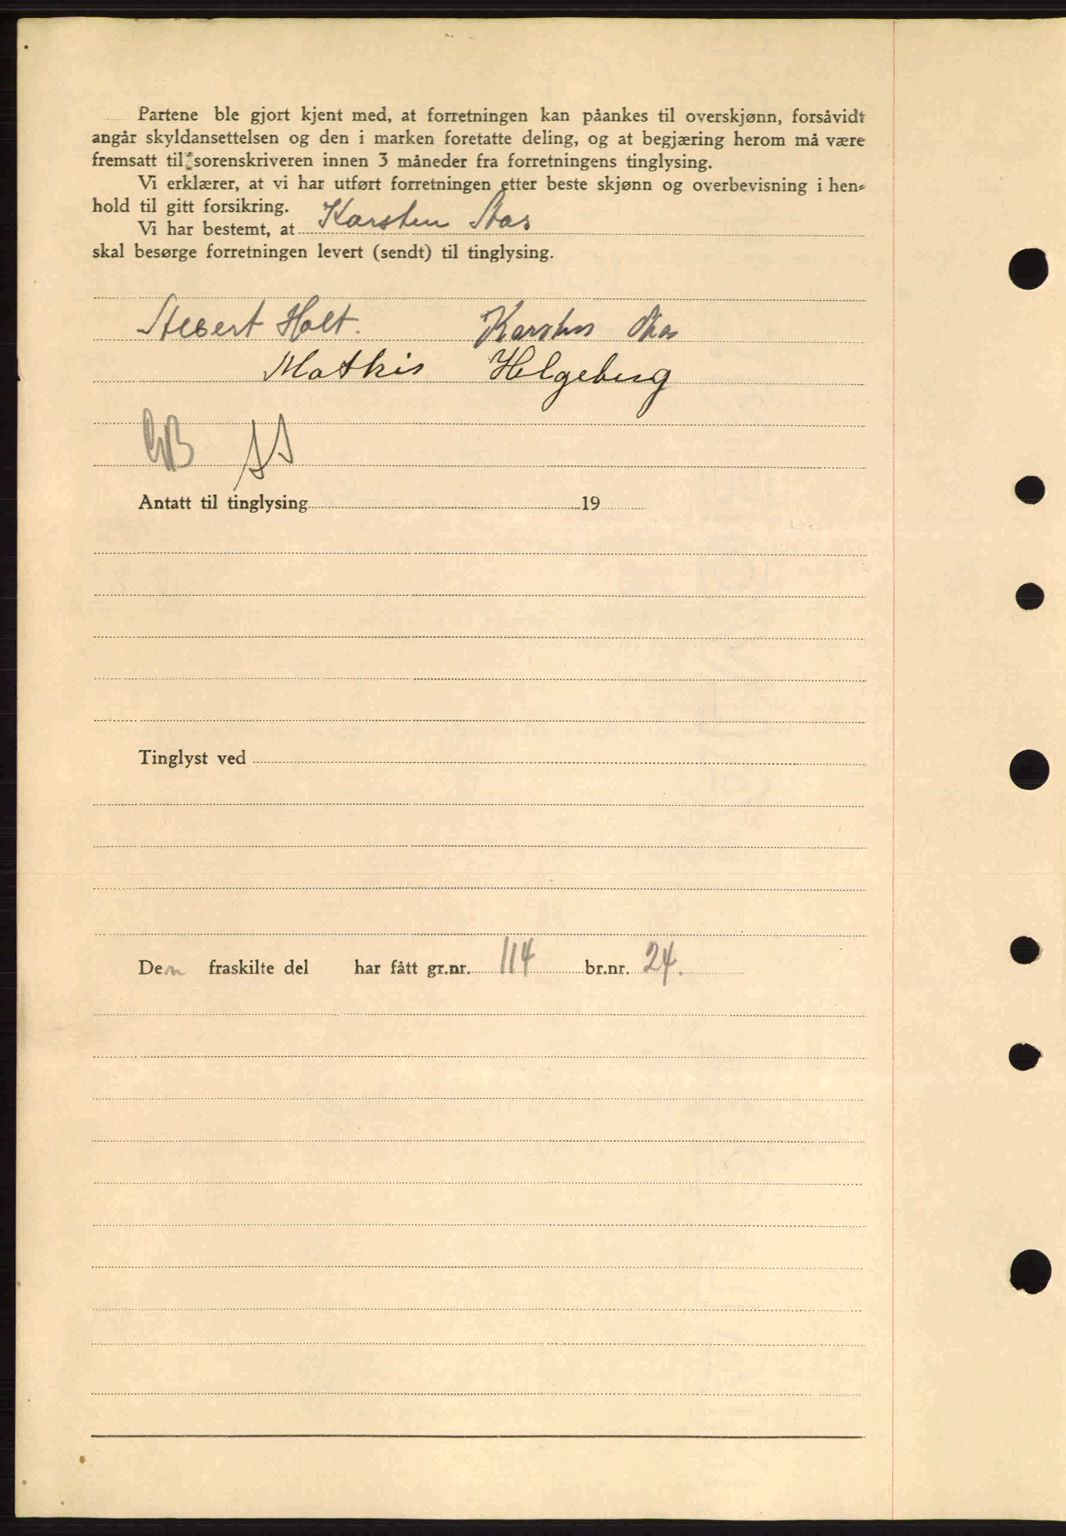 Partene ble gjort kjent med, at forretningen kan påankes til overskjønn, forsåvidt
angår skyldansettelsen og den i marken foretatte deling, og at begjæring herom må være
fremsatt til sorenskriveren innen 3 måneder fra forretningens tinglysing.
Vi erklærer, at vi har utført forretningen etter beste skjønn og overbevisning i hen-
hold til gitt forsikring.
Vi har bestemt, at Karsten Stas
skal besørge forretningen levert (sendt) til tinglysing.
Holt. Karsten
Mathis Helgeberg
GB
Antatt til tinglysing 19
Tinglyst ved
Den fraskilte del har fått gr.nr. 114 br.nr. 24.